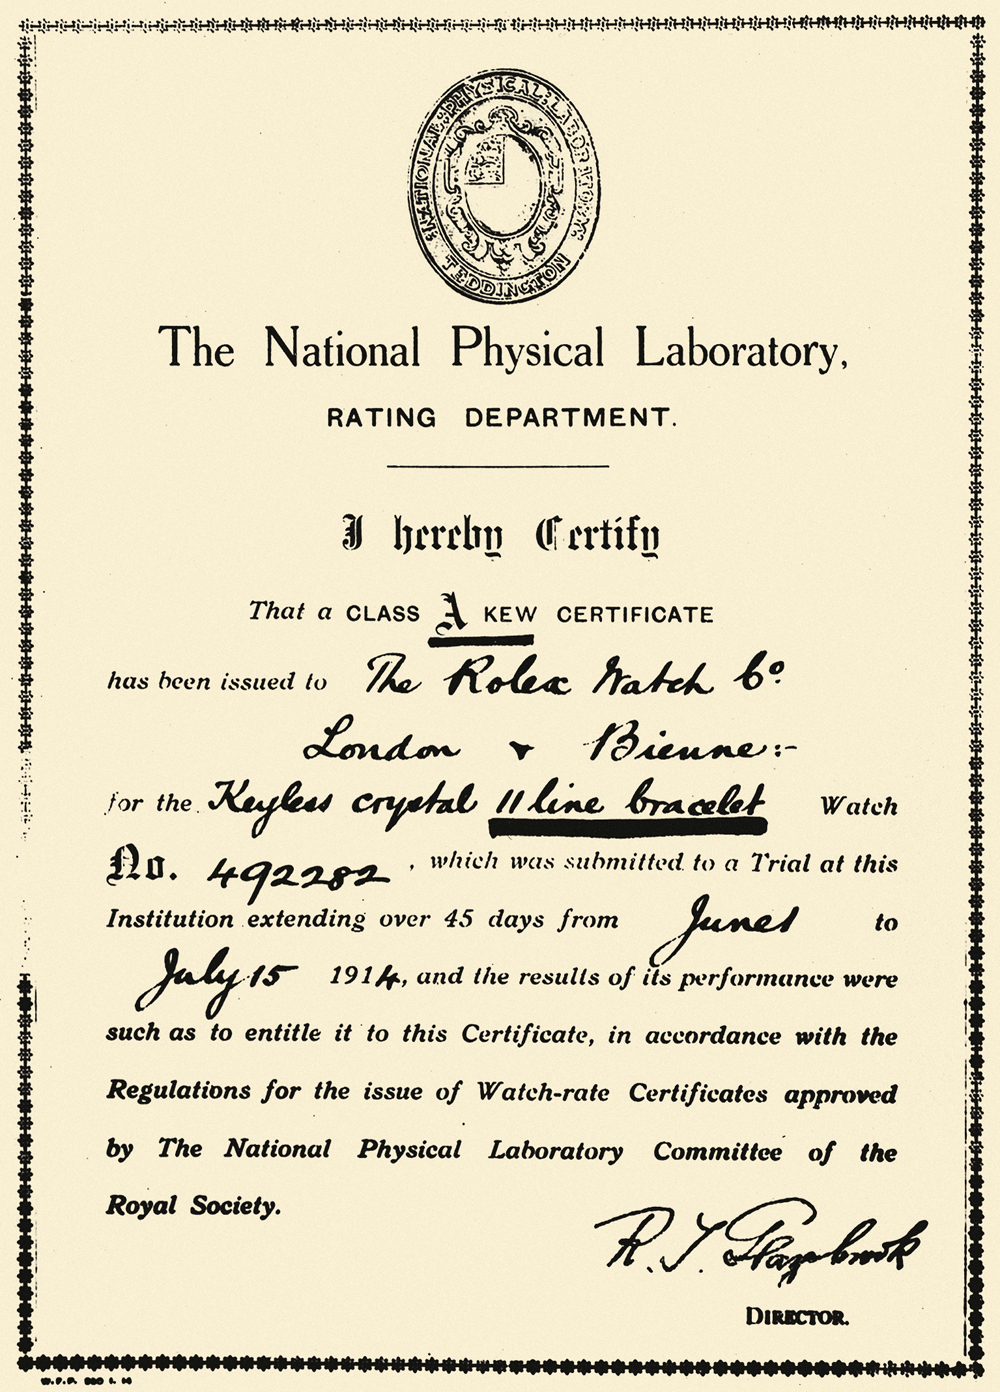 NATIONAL PHYSICAL LABORATORY
TEDDINGTON
The National Physical Laboratory,
RATING DEPARTMENT.
I hereby Certify
That a CLASS A KEW CERTIFICATE
has been issued to The Rolex Watch Co.
London & Bienne:-
for the Keyless crystal 11 line bracelet Watch
No. 492282, which was submitted to a Trial at this
Institution extending over 45 days from June 1 to
July 15 1914, and the results of its performance were
such as to entitle it to this Certificate, in accordance with the
Regulations for the issue of Watch-rate Certificates approved
by The National Physical Laboratory Committee of the
Royal Society.
R. T. Glazebrook
DIRECTOR.